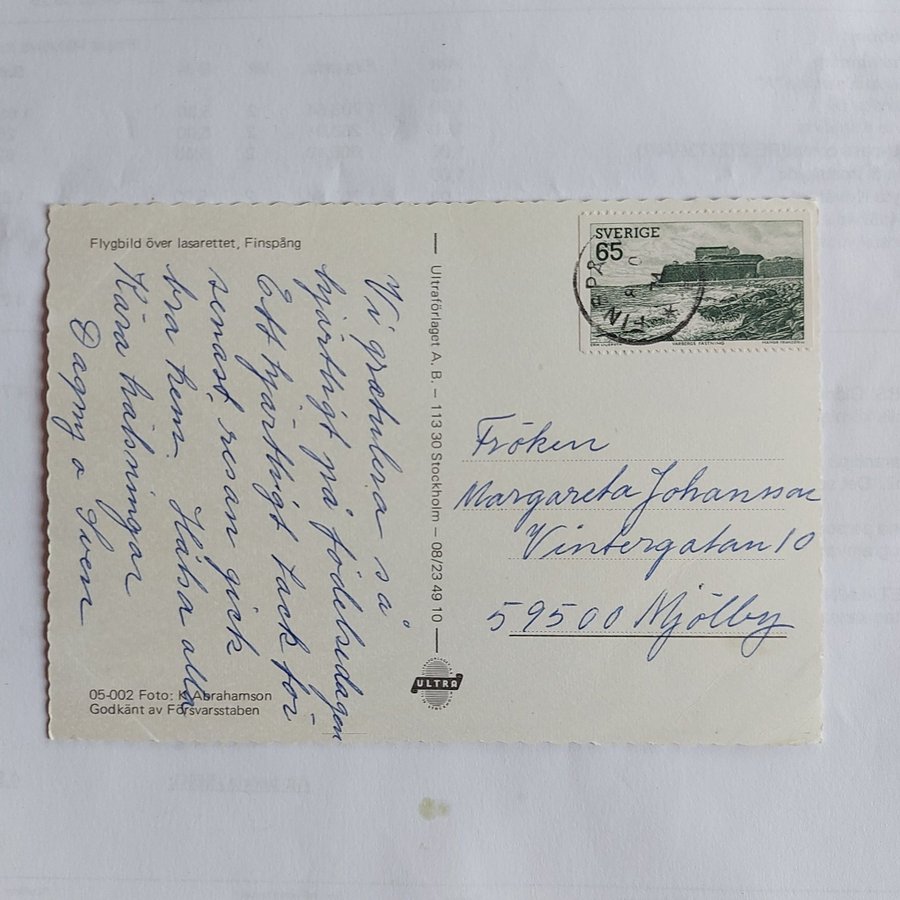 Flygbild över lasarettet, Finspång
Vi gratulera så
hjärtligt på födelsedagen
Ett hjärtligt tack för
senast, resan gick
bra hem. Hälsa alla
Kära hälsningar
Dagmy o Sven
05-002 Foto: K. Abrahamson
Godkänt av Försvarsstaben
Ultraförlaget A. B. – 113 30 Stockholm – 08/23 49 10
ULTRA
SVERIGE
65
VARBERGS FÄSTNING
FINSPÅ
Fröken
Margareta Johansson
Vintergatan 10
59500 Mjölby